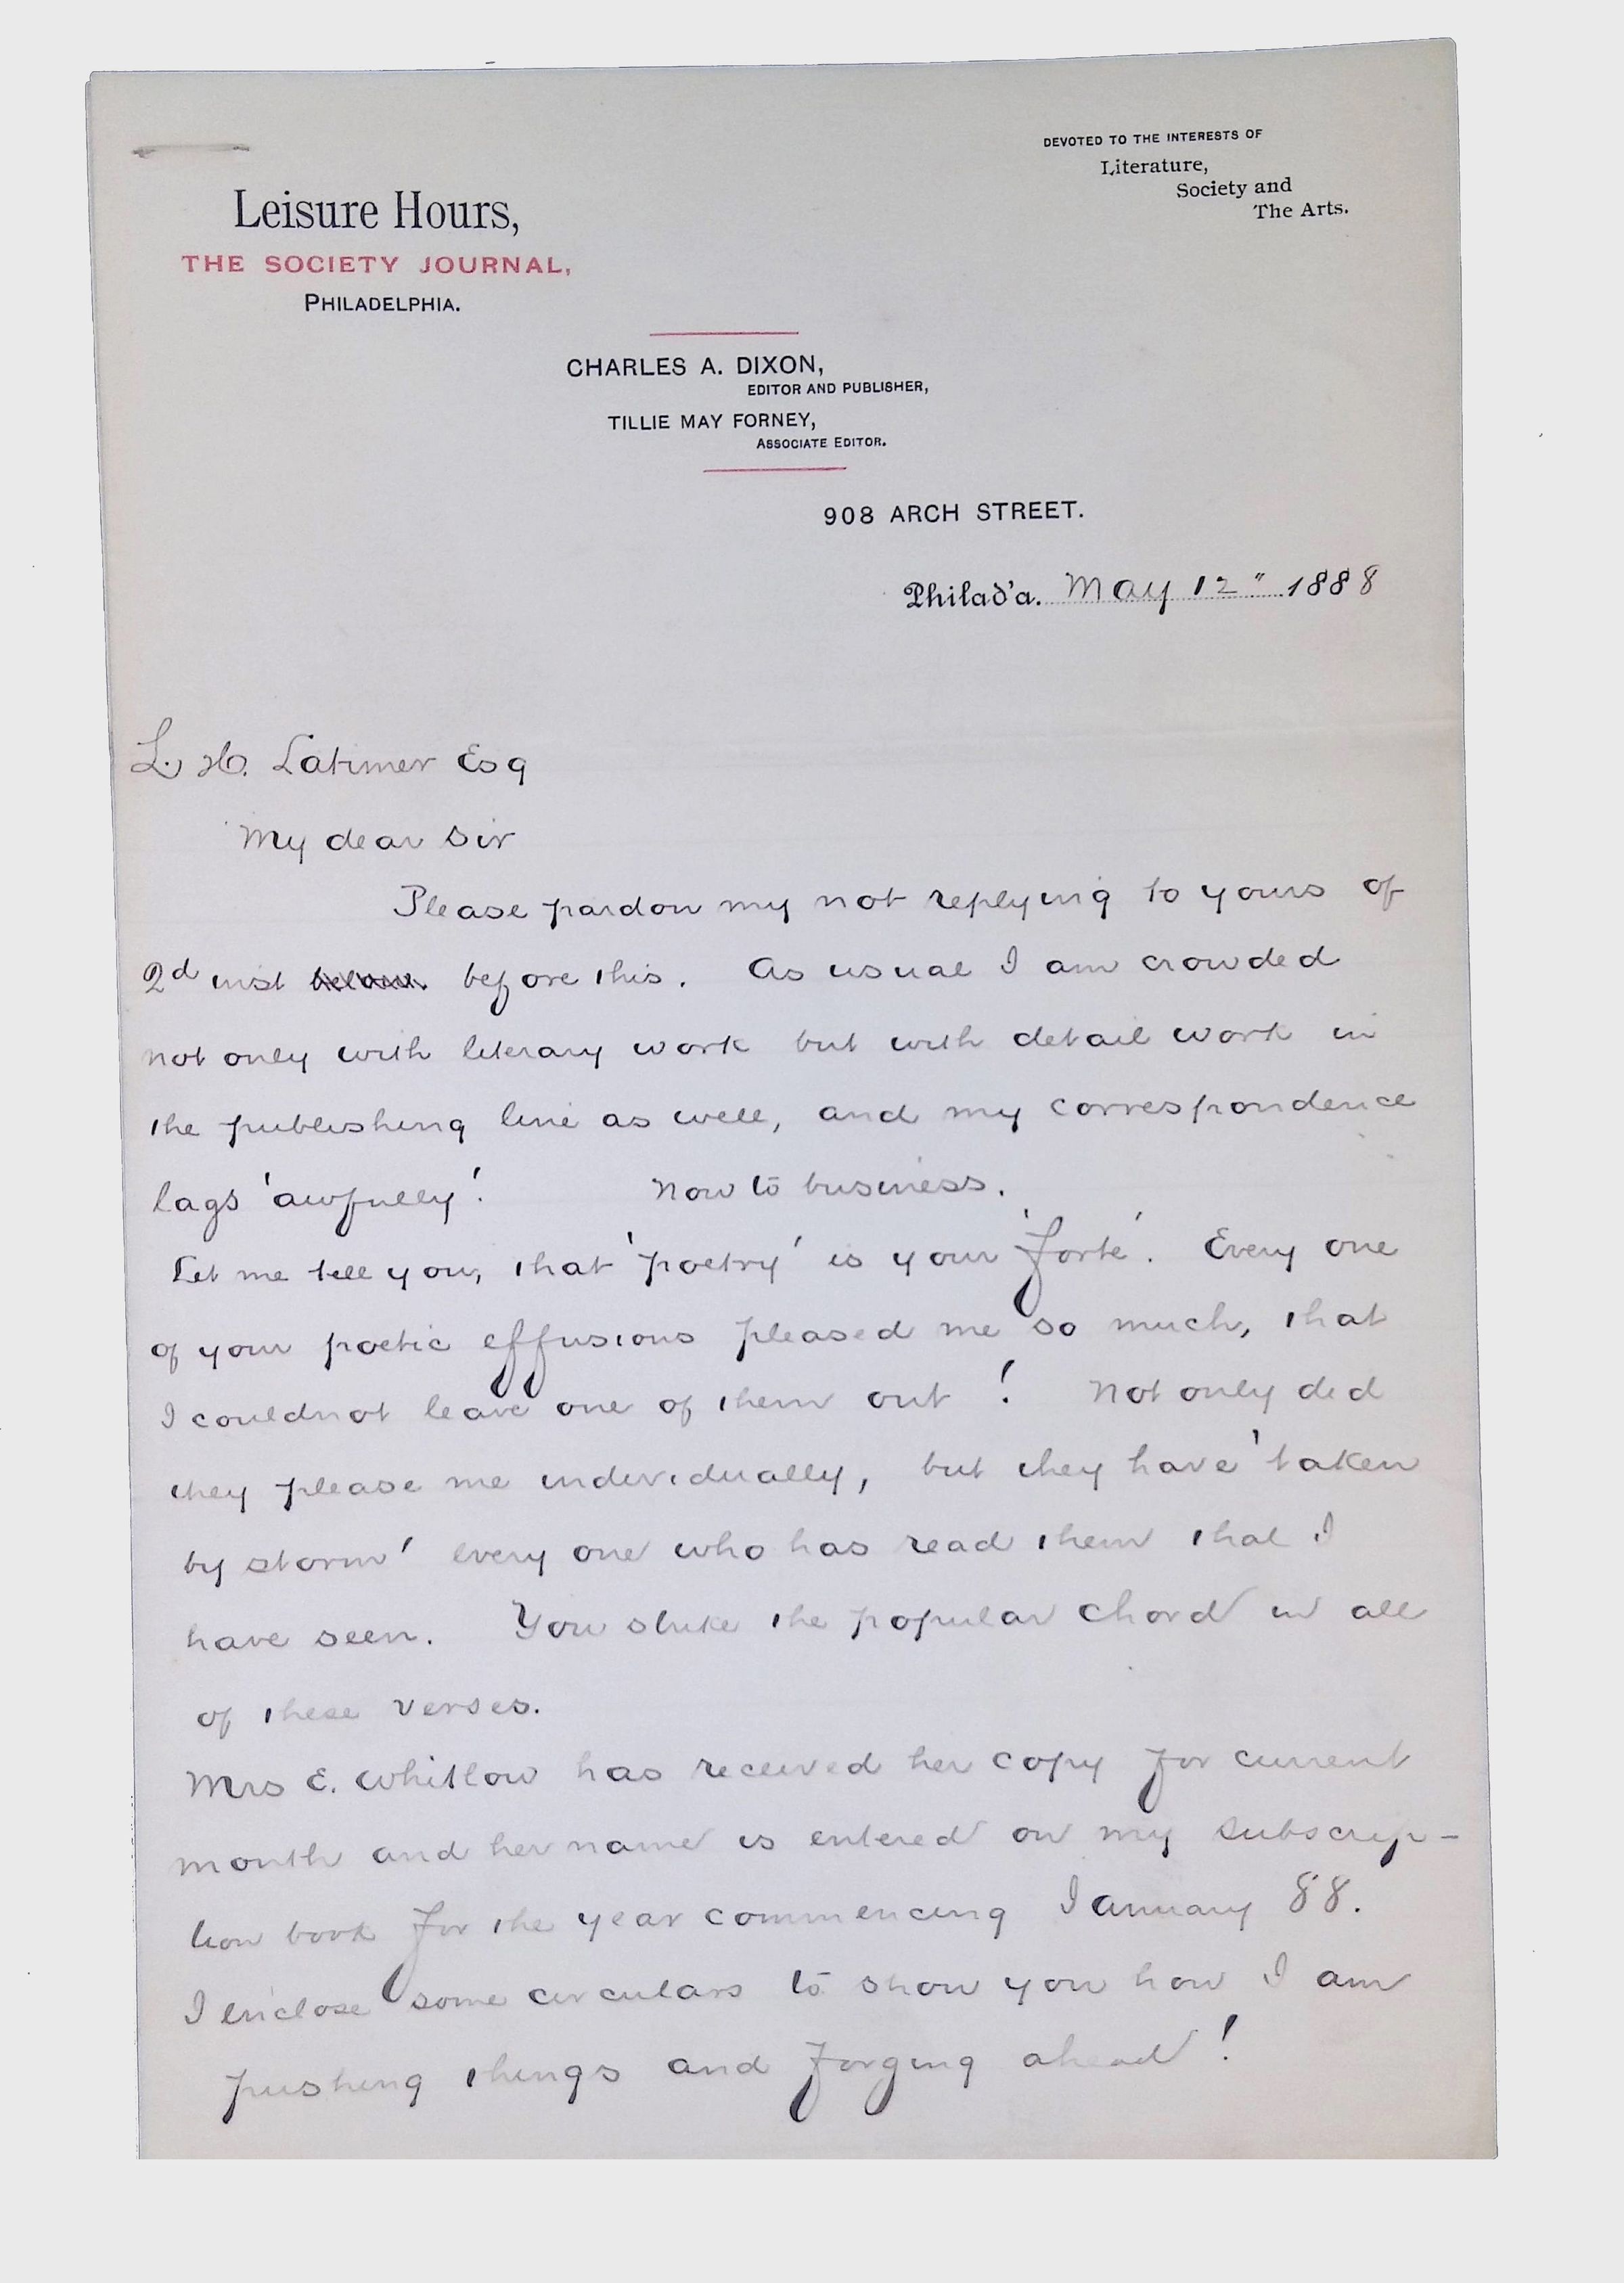 DEVOTED TO THE INTERESTS OF
Literature,
Society and
The Arts.
Leisure Hours,
THE SOCIETY JOURNAL,
PHILADELPHIA.
CHARLES A. DIXON,
EDITOR AND PUBLISHER,
TILLIE MAY FORNEY,
ASSOCIATE EDITOR.
908 ARCH STREET.
Philad'a. May 12" 1888
L. H. Latimer Esq
My dear Sir
Please pardon my not replying to yours of
2d inst before this. As usual I am crowded
not only with literary work but with detail work in
the publishing line as well, and my correspondence
lags 'awfully'! Now to business.
Let me tell you, that 'poetry' is your 'forte'. Every one
of your poetic effusions pleased me so much, that
I couldnot leave one of them out! Not only did
they please me individually, but they have 'taken
by storm' every one who has read them that I
have seen. You strike the popular chord in all
of these verses.
Mrs E. Whitlow has received her copy for current
month and her name is entered on my subscrip-
tion book for the year commencing January 88.
I enclose some circulars to show you how I am
pushing things and forging ahead!